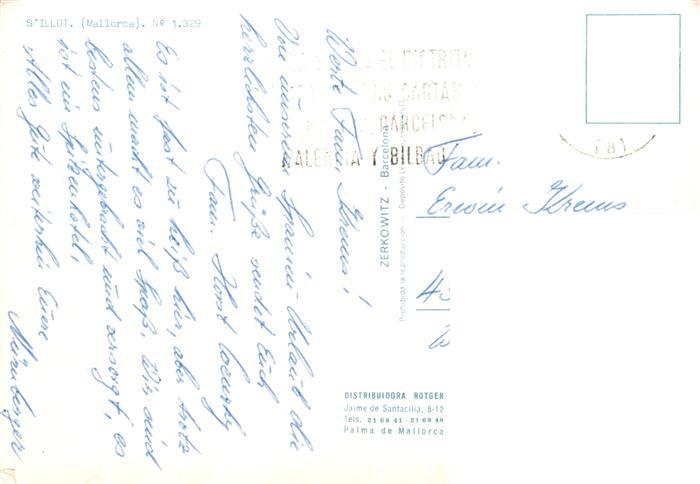 S'ILLOT. (Mallorca). Nº 1.329
Werte Fam. Krems!
Von unserem Spanien-Urlaub die
herrlichsten Grüße sendet Euch
Fam. Horst
Es ist fast zu heiß hier, aber trotz
allem macht es viel Spaß. Wir sind
bestens untergebracht und versorgt, es
ist ein Spitzenhotel!
Alles Gute weiterhin Euere
Nürnberger
EL DISTRITO
CARTAS
BARCELONA
VALENCIA Y BILBAO
(8)
ZERKOWITZ - Barcelona
Prohibida la reproducción - Depósito
Fam.
Erwin Krems
DISTRIBUIDORA ROTGER
Jaime de Santacilia, 8-12
Tels. 21 68 41 - 21 69 48
Palma de Mallorca